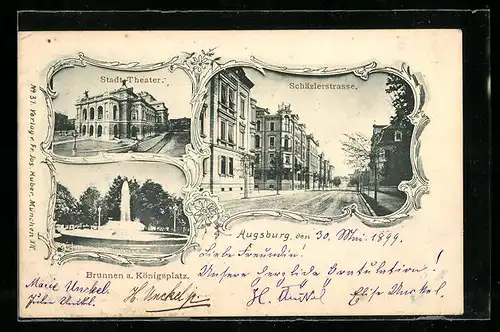 Stadt-Theater.
Schäzlerstrasse.
No. 31. Verlag v. Fr. Jos. Huber, München XII.
Brunnen a. Königsplatz.
Augsburg, den 30. Mai 1899.
Liebe Freundin!
Unsere herzliche Gratulation!
Marie Unckel.
H. Unckel
Elise Unckel.
H. Unckel